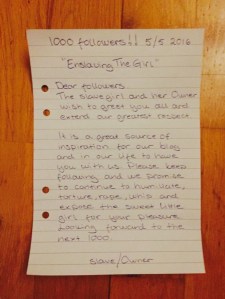 1000 followers!! 5/5 2016
"Enslaving The Girl"
Dear followers
The slavegirl and her Owner
wish to greet you all and
extend our greatest respect.
It is a great source of
inspiration for our blog
and in our life to have
you with us. Please, keep
following and we promise
to continue to humiliate,
torture, rape, and
expose the sweet little
girl for your pleasure.
Looking forward to the
next 1000.
slave/Owner